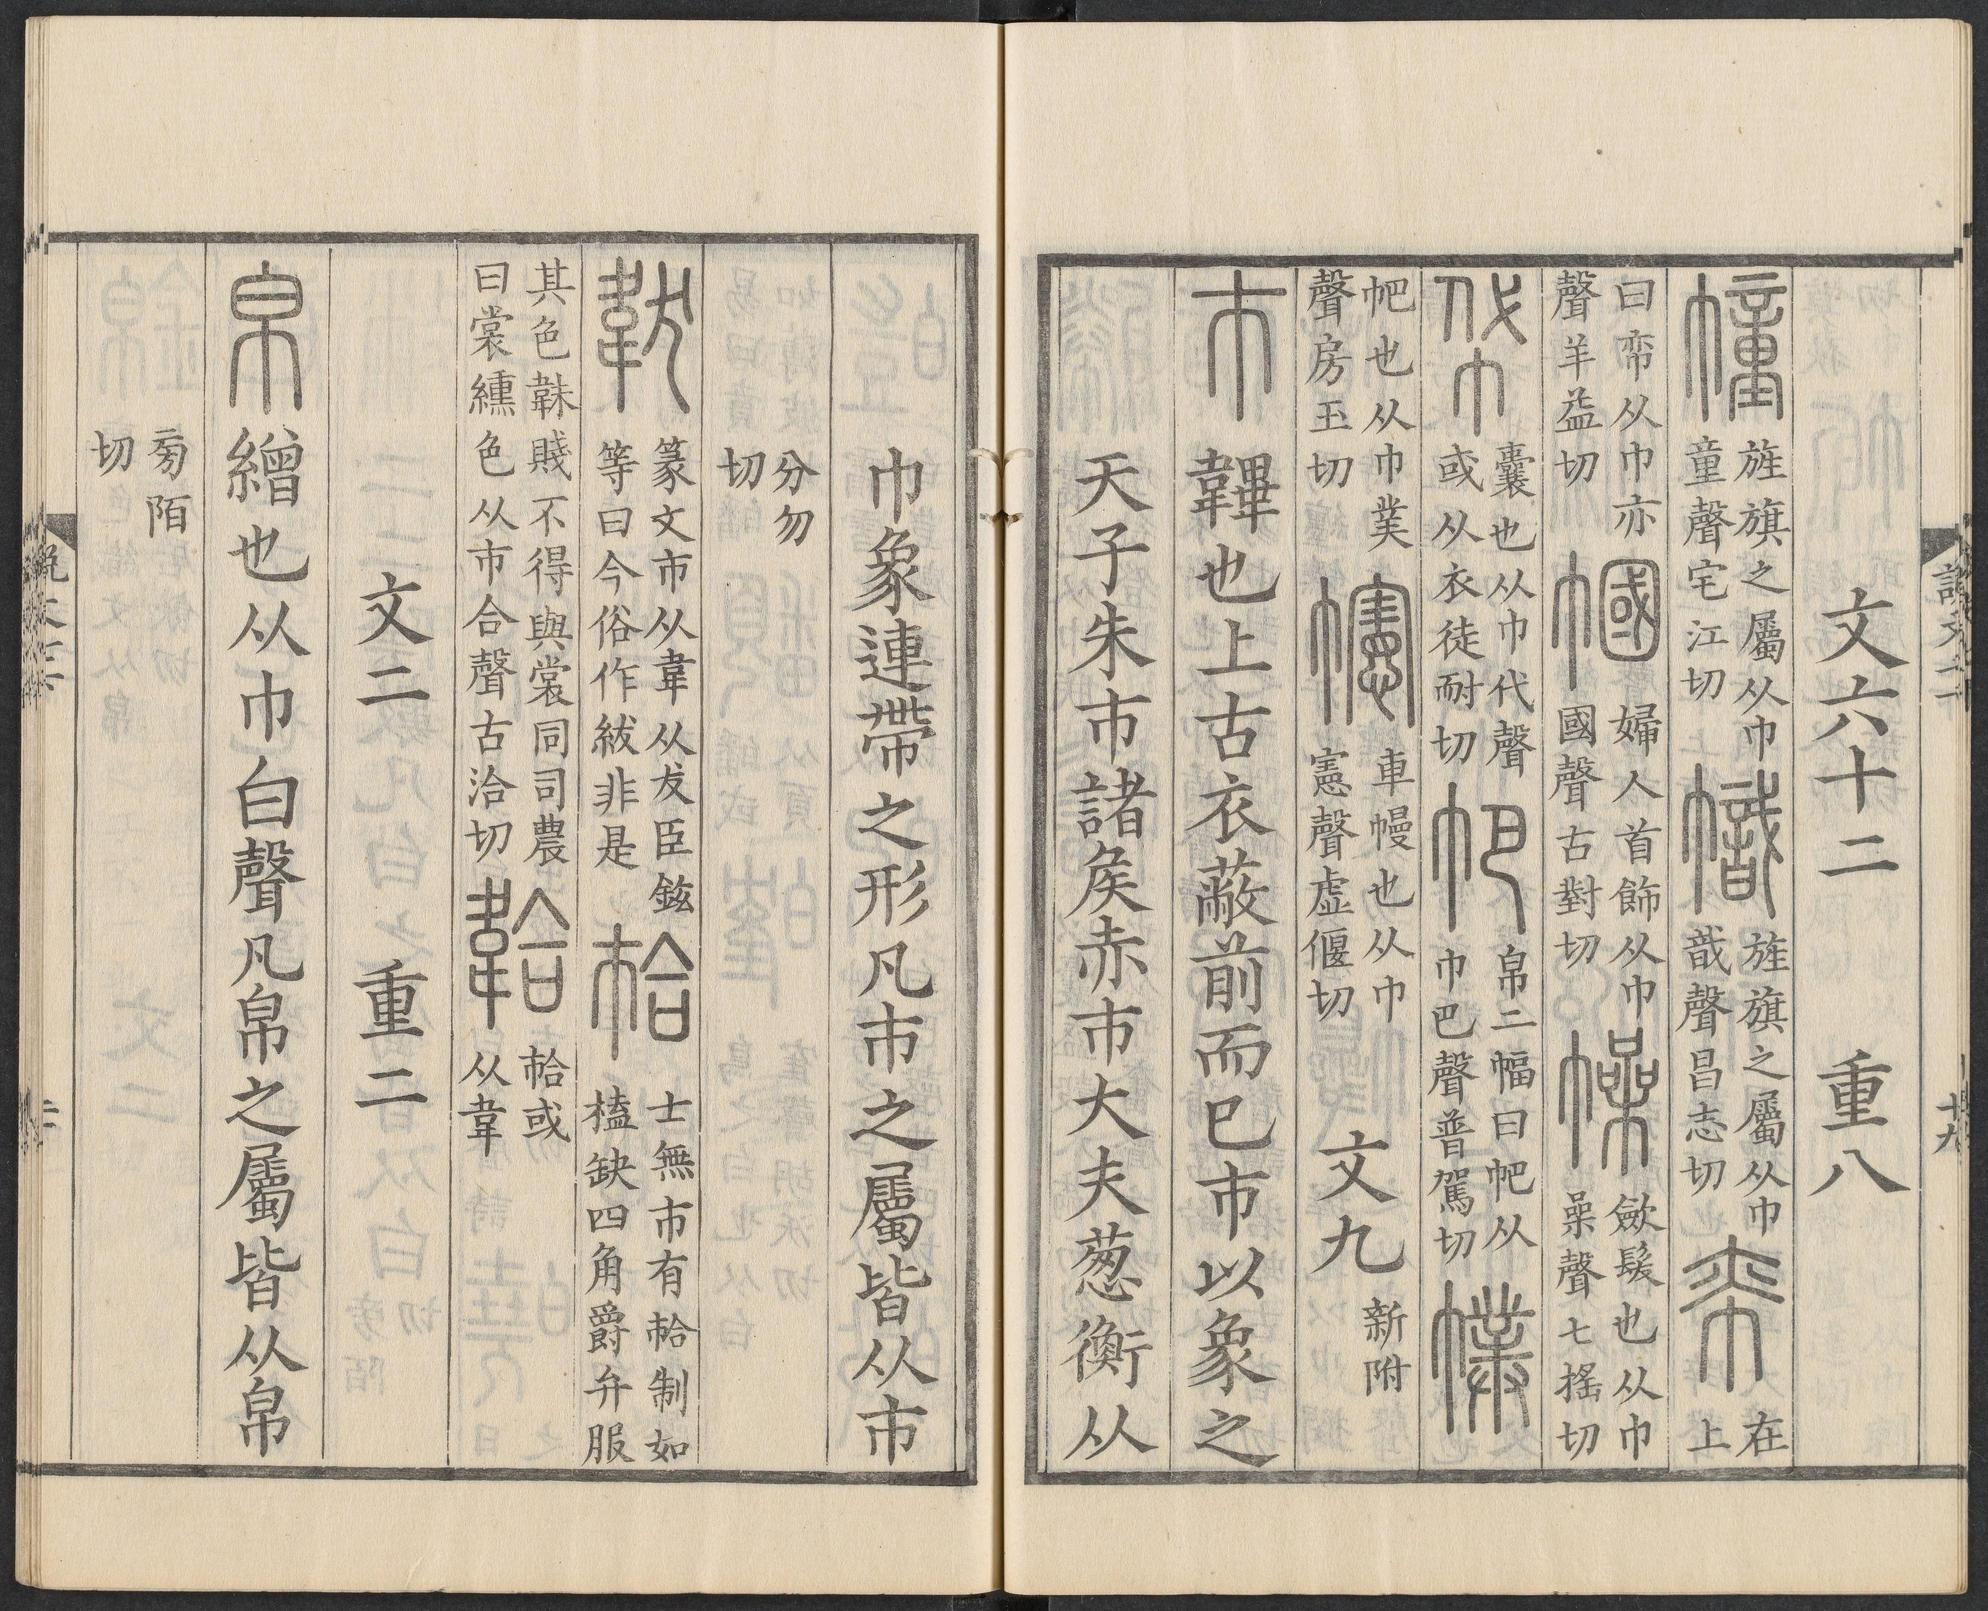 文六十二　重八
幢旌旗之屬从巾童聲宅江切幟旌旗之屬从巾戠聲昌志切帟在上
曰帟从巾亦聲羊益切幗婦人首飾从巾國聲古對切幧歛髮也从巾喿聲七搖切
帒囊也从巾代聲或从衣徒耐切帊帛二幅曰帊从巾巴聲普駕切幞
帊也从巾菐聲房玉切幰車幔也从巾憲聲虛偃切　文九　新附
巿韠也上古衣蔽前而已巿以象之
天子朱巿諸矦赤巿大夫葱衡从
巾象連帶之形凡巿之屬皆从巿
分勿切
韍篆文巿从韋从犮臣鉉等曰今俗作紱非是帢士無巿有帢制如榼缺四角爵弁服
其色韎賤不得與裳同司農曰裳纁色从巿合聲古洽切韐帢或从韋
文二　重二
帛繒也从巾白聲凡帛之屬皆从帛
旁陌切